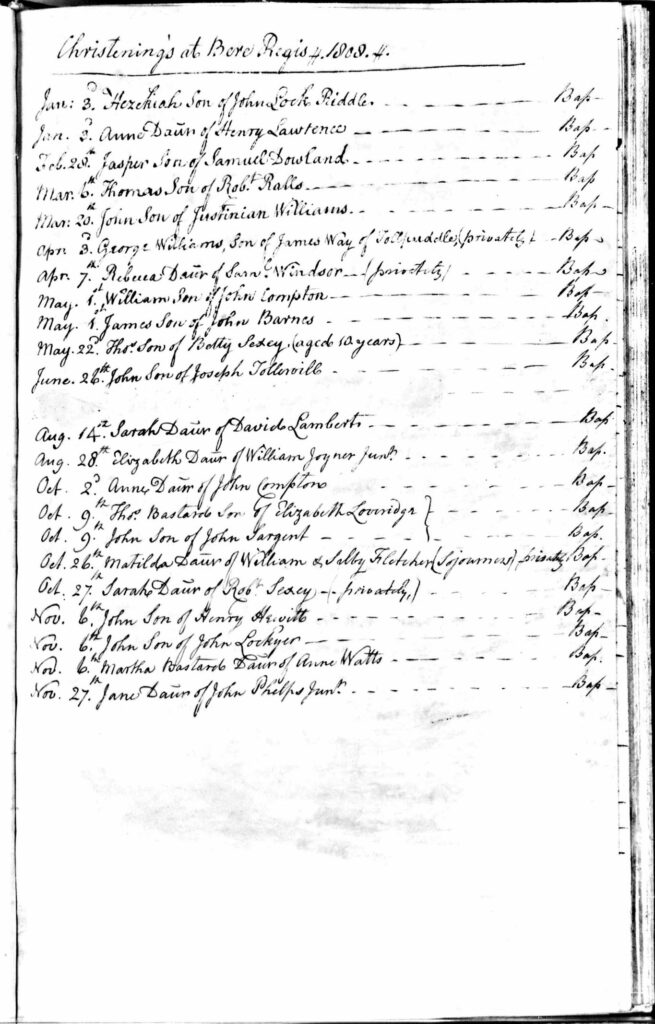 Christening's at Bere Regis. 1808.
Jan: 3d. Hezekiah Son of John Lock Riddle. Bap
Jan. 3d. Anne Daur of Henry Lawrence Bap
Feb. 28th. Jasper Son of Samuel Dowland Bap
Mar. 6th. Thomas Son of Robt. Ralls Bap
Mar: 20th. John Son of Justinian Williams. Bap
Apr. 3d. George Williams, Son of James Way of Tollpuddle (privately) Bap
Apr. 7th. Rebecca Daur of Saml. Windsor (privately) Bap
May. 1st. William Son of John Compton Bap
May. 1st. James Son of John Barnes Bap.
May. 22d. Thos. Son of Betty Sexey. (aged 10 years) Bap
June. 26th. John Son of Joseph Tollervill Bap.
Aug. 14th. Sarah Daur of David Lambert Bap
Aug. 28th. Elizabeth Daur of William Joyner Junr. Bap.
Oct. 2d. Anne Daur of John Compton Bap
Oct. 9th. Thos. Bastard Son of Elizabeth Loveridge } Bap.
Oct. 9th. John Son of John Sargent } Bap.
Oct. 26th. Matilda Daur of William & Salby Fletcher (Sojourners) privately Bap
Oct. 27th. Sarah Daur of Robt. Sexey (privately,) Bap
Nov. 6th. John Son of Henry Hewitt Bap
Nov. 6th. John Son of John Lockyer Bap
Nov. 6th. Martha Bastard Daur of Anne Watts Bap.
Nov. 27th. Jane Daur of John Phelps Junr. Bap